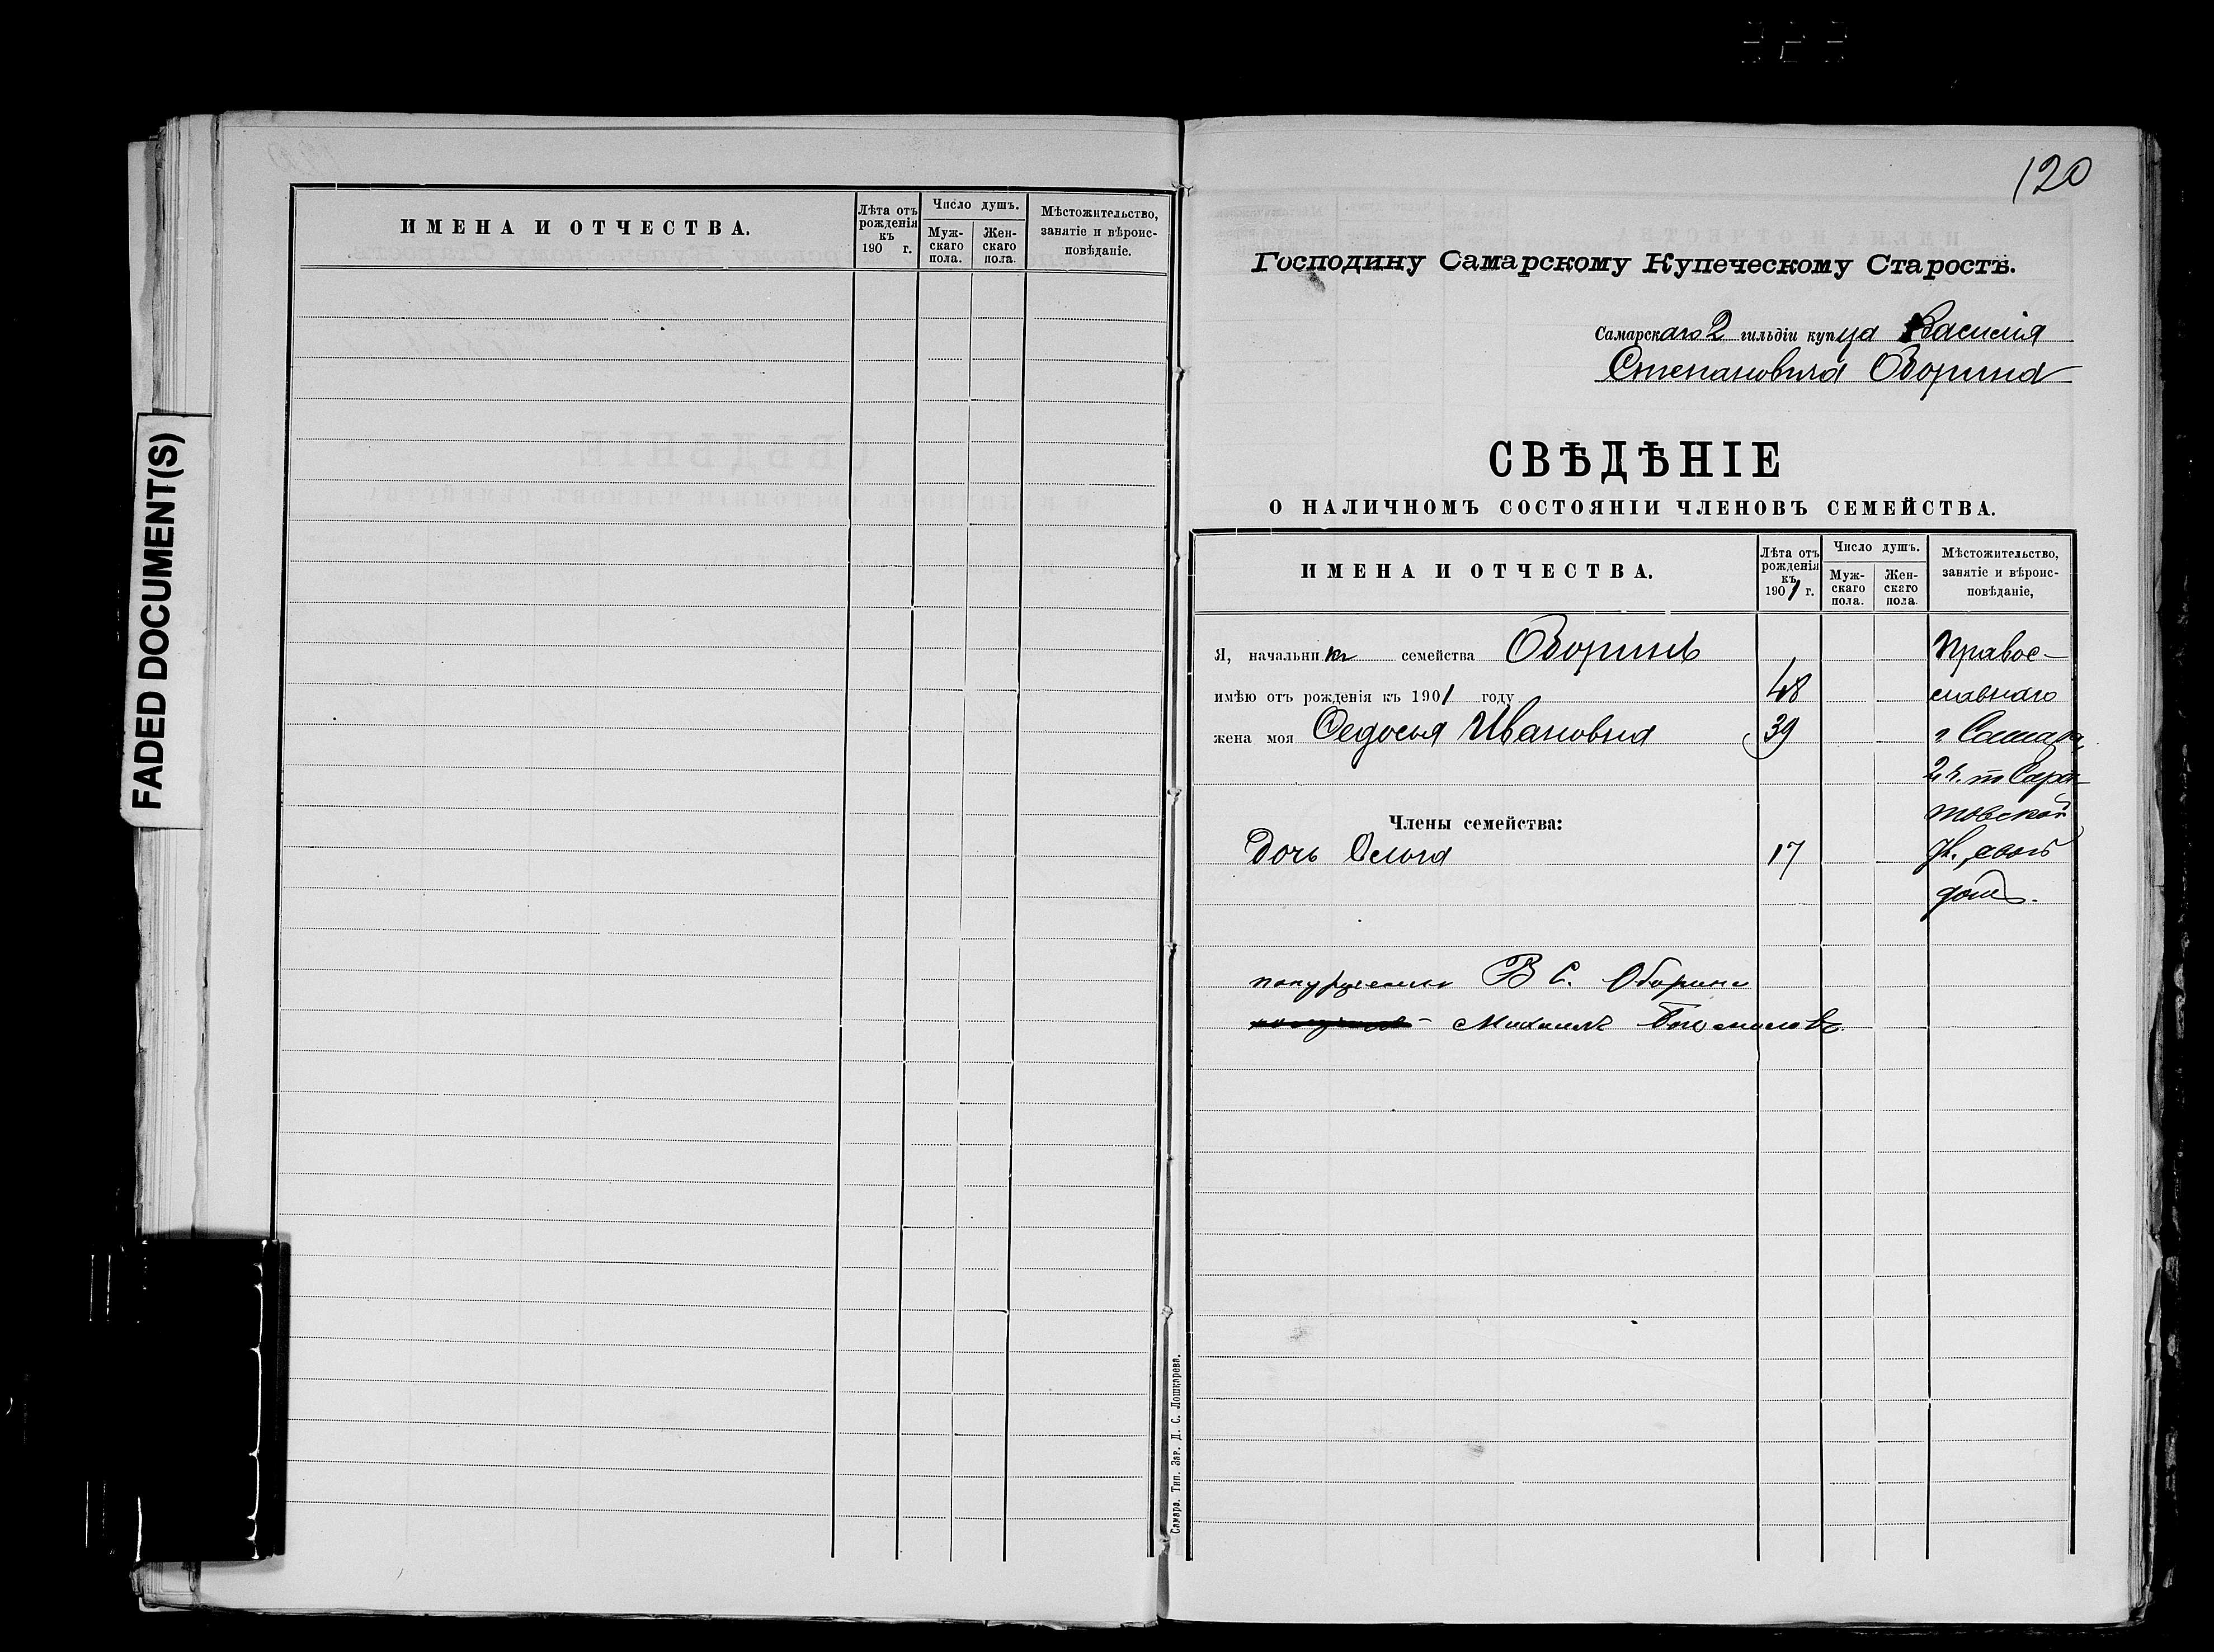 FADED DOCUMENT(S)
ИМЕНА И ОТЧЕСТВА.
Лѣта отъ рожденія къ 190 г.
Число душъ.
Мужскаго пола.
Женскаго пола.
Мѣстожительство, занятіе и вѣроисповѣданіе.
120
Господину Самарскому Купеческому Старостѣ.
Самарскаго 2 гильдіи купца Василія
Степановича Оборина
СВѢДѢНІЕ
О НАЛИЧНОМЪ СОСТОЯНІИ ЧЛЕНОВЪ СЕМЕЙСТВА.
ИМЕНА И ОТЧЕСТВА.
Лѣта отъ рожденія къ 1901 г.
Число душъ.
Мужскаго пола.
Женскаго пола.
Мѣстожительство, занятіе и вѣроисповѣданіе,
Я, начальникъ семейства Оборинъ Правос-
имѣю отъ рожденія къ 1901 году 48 лавнаго
жена моя Ѳедосья Ивановна 39 г Самара,
2 ч. Сара-
Члены семейства: товской
Дочь Ольга 17 ул. свой
домъ.
В С. Оборина
Михаилъ
Самара. Тип. Зар. Д. С. Лошкарева.